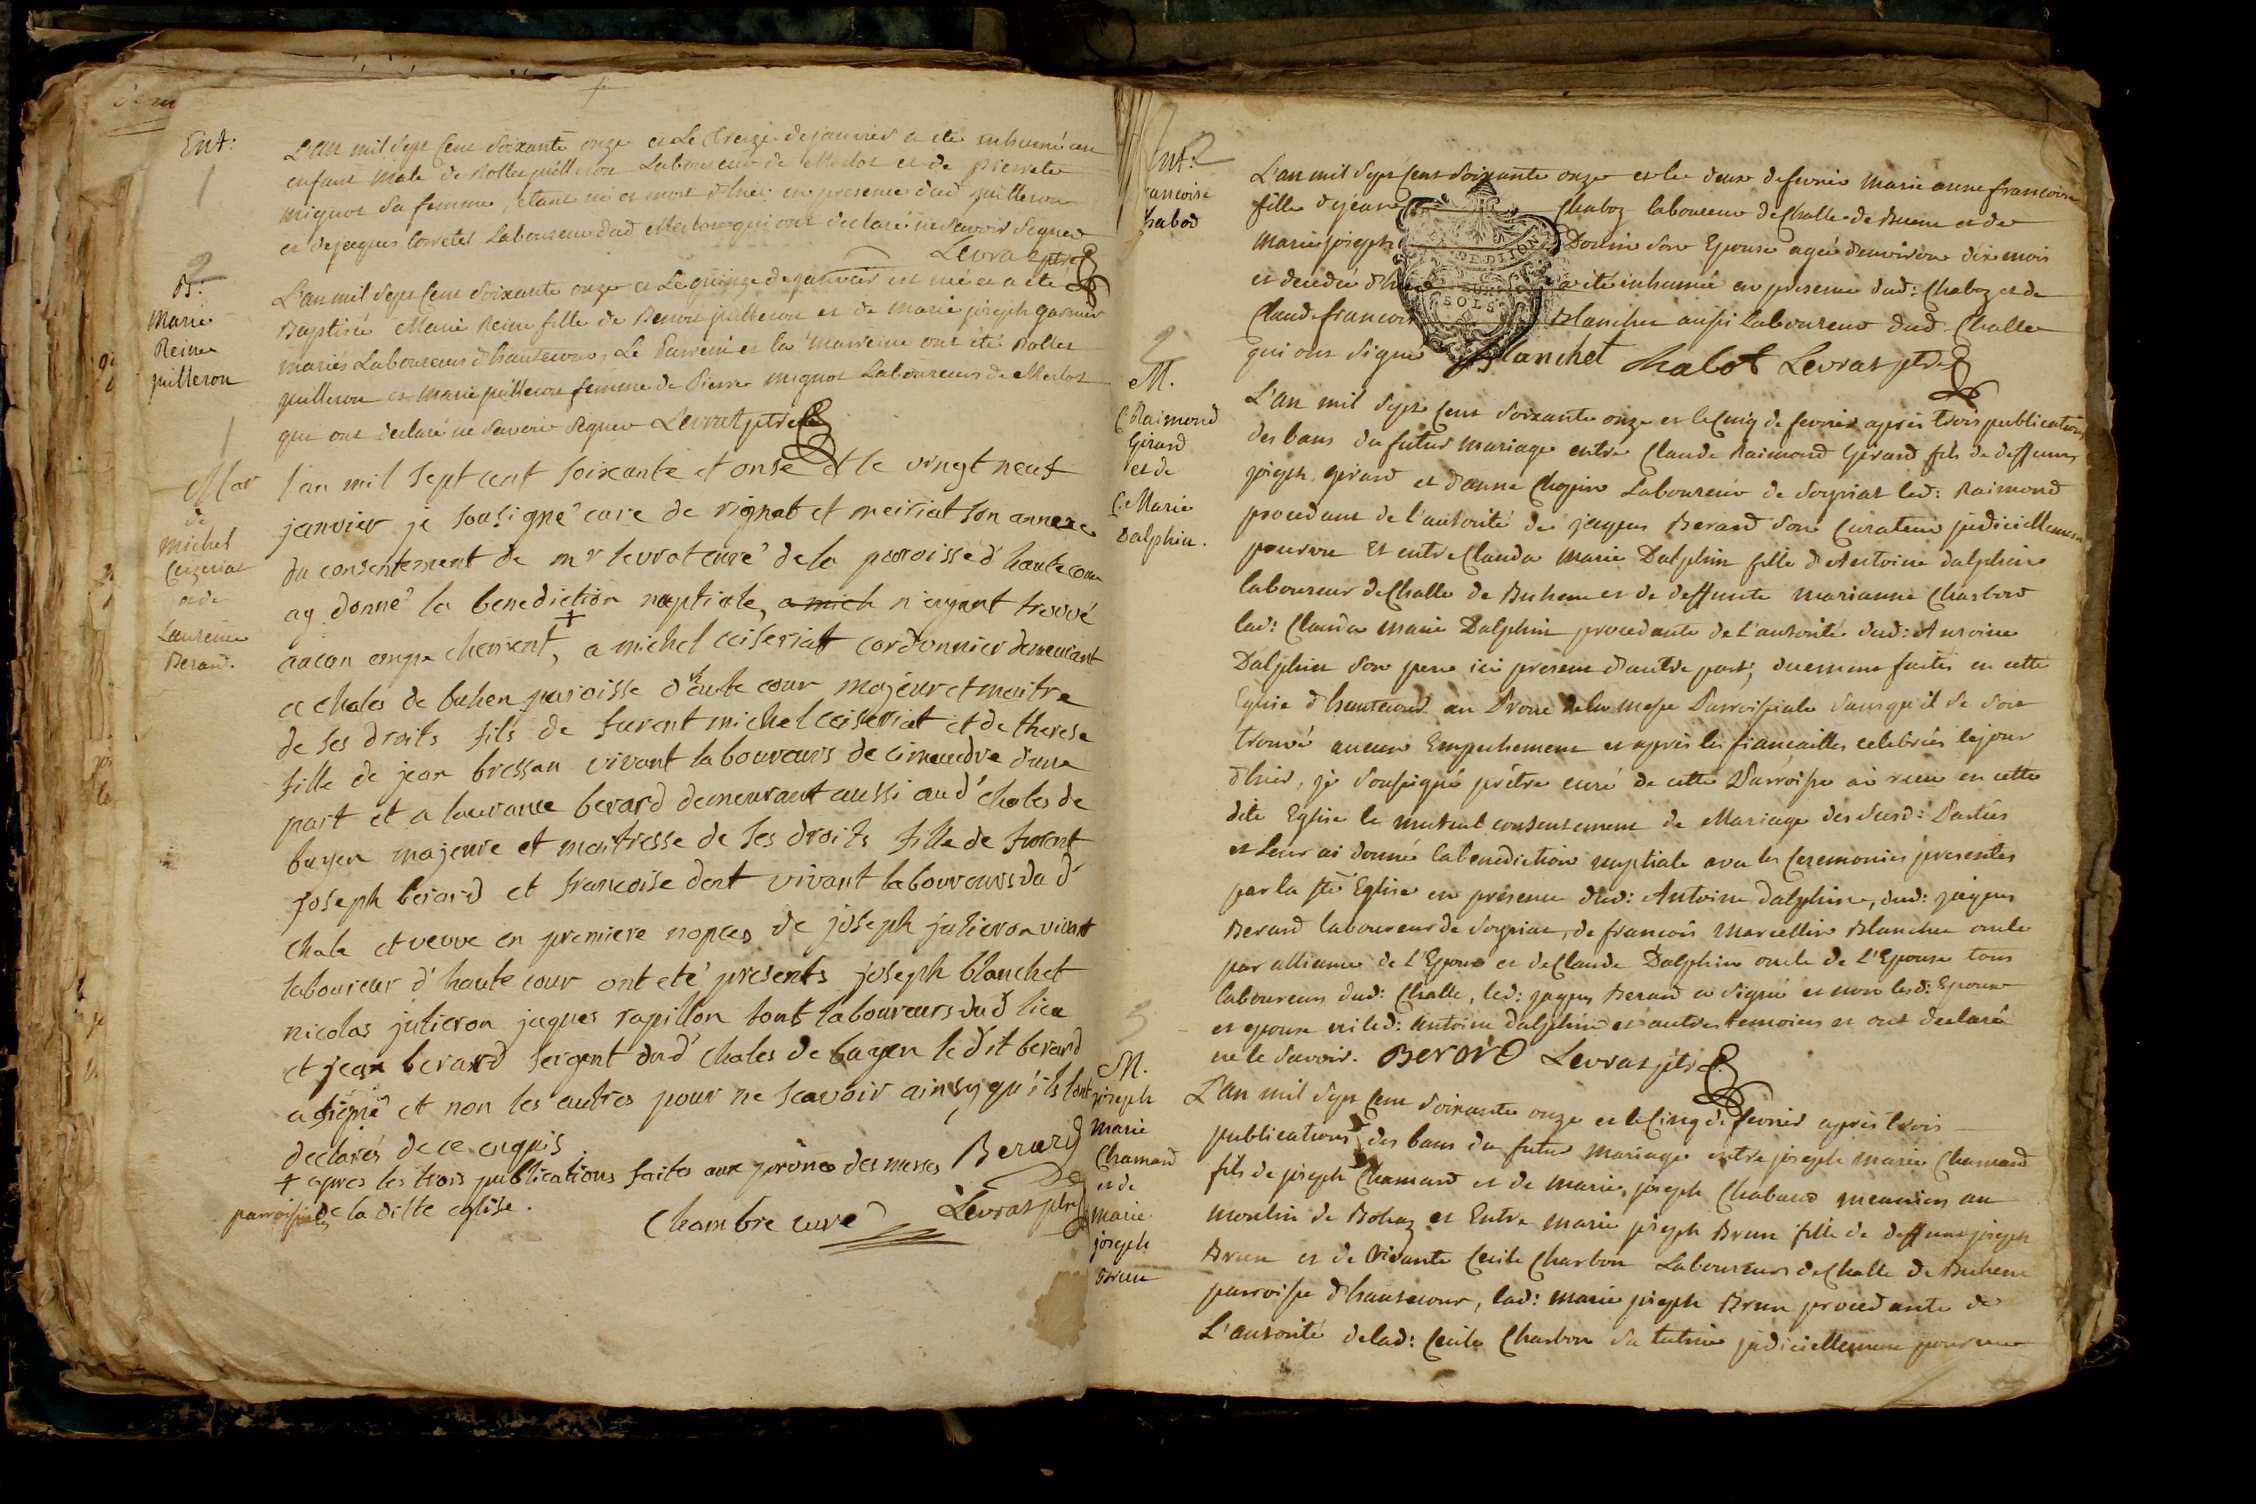 Ent:
1
L'an mil Sept Cent Soixante onze et Le treize de janvier a été inhumé un
enfant male de Rollet juilleron Laboureur de Merlot et de pierrete
mignot sa femme, étant né et mort d'hier en presence dud juilleron
et de jaques Laboureur dud Merlot qui ont declaré ne savoir Signer
Levrat ptre
2
B:
Marie
Reine
juilleron
L'an mil Sept Cent Soixante onze et Le quinze de janvier est née et a été
Baptisée Marie Reine fille de Benoit juilleron et de marie joseph garnier
mariés Laboureurs d'hautecour, Le Parrein et la marreine ont été Rollet
juilleron et marie juilleron femme de Pierre mignot Laboureurs de Merlot
qui ont declaré ne Savoir Signer Levrat ptre
1
Mar
de
michel
Ceyzeriat
et de
Laureine
Berard.
l'an mil sept cent soixante et onse et le vingt neuf
janvier je sousigné curé de rignat et meiriat son annexe
du consentement de mr levrat curé de la parroisse d'haute cour
ay donné la benediction nuptiale, a mich n'ayant trouvé
aucun empechement +, a michel ceiseriatt cordonnier demeurant
a chales de buhen paroisse d'haute cour majeur et maitre
de ses droits fils de furent michel ceiseriat et de therese
fille de jean bressan vivant laboureurs de cimandre d'une
part et a laurance berard demeurant aussi aud chales de
buyen majeure et maitresse de ses droits fille de furent
joseph berard et francoise dent vivant laboureurs du d
chale et veuve en premiere nopces de joseph julieron vivant
laboureur d'haute cour ont eté presents joseph blanchet
nicolas julieron jaques rapillon tout laboureurs dud lieu
et jean berard sergent dud chales de buyen le dit berard
a signé et non les autres pour ne scavoir ainsy qu'ils l'ont
declarés de ce enquis
+ apres les trois publications faites aux prônes des messes Berard
parroissiales de la ditte eglise.
Chambre curé Levrat ptre
Ent: 2
francoise
Chabod
L'an mil Sept Cent Soixante onze et le deux de fevrier Marie anne francoise
fille de jean Chaboz laboureur de Challe de Buenn et de
Marie joseph Donin son Epouse agée d'environ dix mois
et decedée d'hier a été inhumée en presence dud: Chaboz et de
Claude francois Blanchet aussi Laboureur dud Challe
qui ont signé Blanchet Chabot Levrat ptre
2
M.
C: Raimond
Gérard
et de
C: Marie
Dalphin.
L'an mil Sept Cent Soixante onze et le Cinq de fevrier après trois publications
des bans du futur mariage entre Claude Raimond Gérard fils de deffunt
joseph Gérard et d'anne Chopin Laboureur de Soyriat led: Raimond
procedant de l'autorité de jaques Berard son Curateur judiciellement
pourvu Et entre Clauda Marie Dalphin fille d'Antoine dalphin
laboureur de Challe de Buhenn et de deffunte Marianne Charbon
lad: Clauda Marie Dalphin procedante de l'autorité dud: Antoine
Dalphin son pere ici present d'autre part, duement faites en cette
Eglise d'hautecour au Prone de la Messe Parroissiale sans qu'il se soit
trouvé aucun Empechement et après les fiancailles celebrées le jour
d'hier, je soussigné prêtre curé de cette Parroisse ai recu en cette
dite Eglise le mutuel consentement de Mariage des susd: Parties
et Leur ai donné la benediction nuptiale avec les Ceremonies presentes
par la Ste Eglise en présence dud: Antoine Dalphin, dud: jaques
Berard laboureur de Soyriat, de francois Marcellin Blanchet oncle
par alliance de L'Epoux et de Claude Dalphin oncle de L'Epouse tous
laboureurs dud: Challe, led: jaques Berard a signé et non lesd: Epoux
et epouse ni led: Antoine Dalphin et autres temoins et ont declaré
ne le Savoir. Berard Levrat ptre
3
M.
joseph
Marie
Chamard
et de
Marie
joseph
Brun
L'an mil Sept Cent Soixante onze et le Cinq de fevrier après trois
publications des bans du futur Mariage entre joseph Marie Chamard
fils de joseph Chamard et de Marie joseph Chabaud meuniers au
moulin de Bohaz et Entre Marie joseph Brun fille de deffunt joseph
Brun et de vivante Cecile Charbon Laboureurs de Challe de Buhenn
parroisse d'hautecour, lad: Marie joseph Brun procedante de
L'autorité de lad: Cecile Charbon sa tutrice judiciellement pourvue